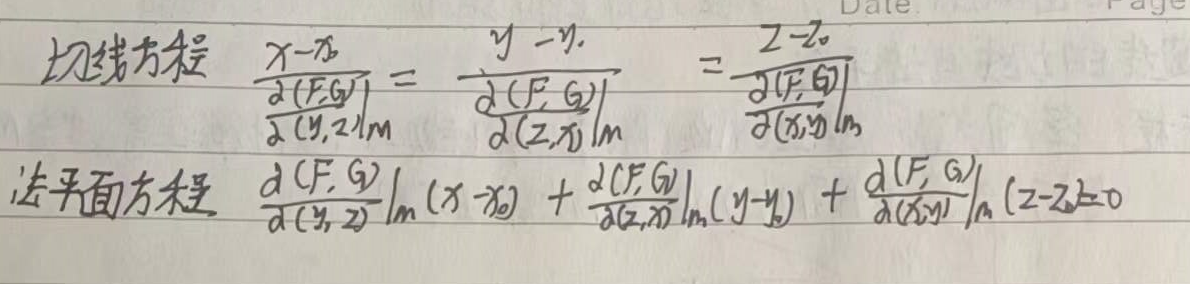 Date Page
切线方程 \frac{x-x_0}{\frac{∂(F,G)}{∂(y,z)}|_M} = \frac{y-y_0}{\frac{∂(F,G)}{∂(z,x)}|_M} = \frac{z-z_0}{\frac{∂(F,G)}{∂(x,y)}|_M}
法平面方程 \frac{∂(F,G)}{∂(y,z)}|_M (x-x_0) + \frac{∂(F,G)}{∂(z,x)}|_M (y-y_0) + \frac{∂(F,G)}{∂(x,y)}|_M (z-z_0)=0